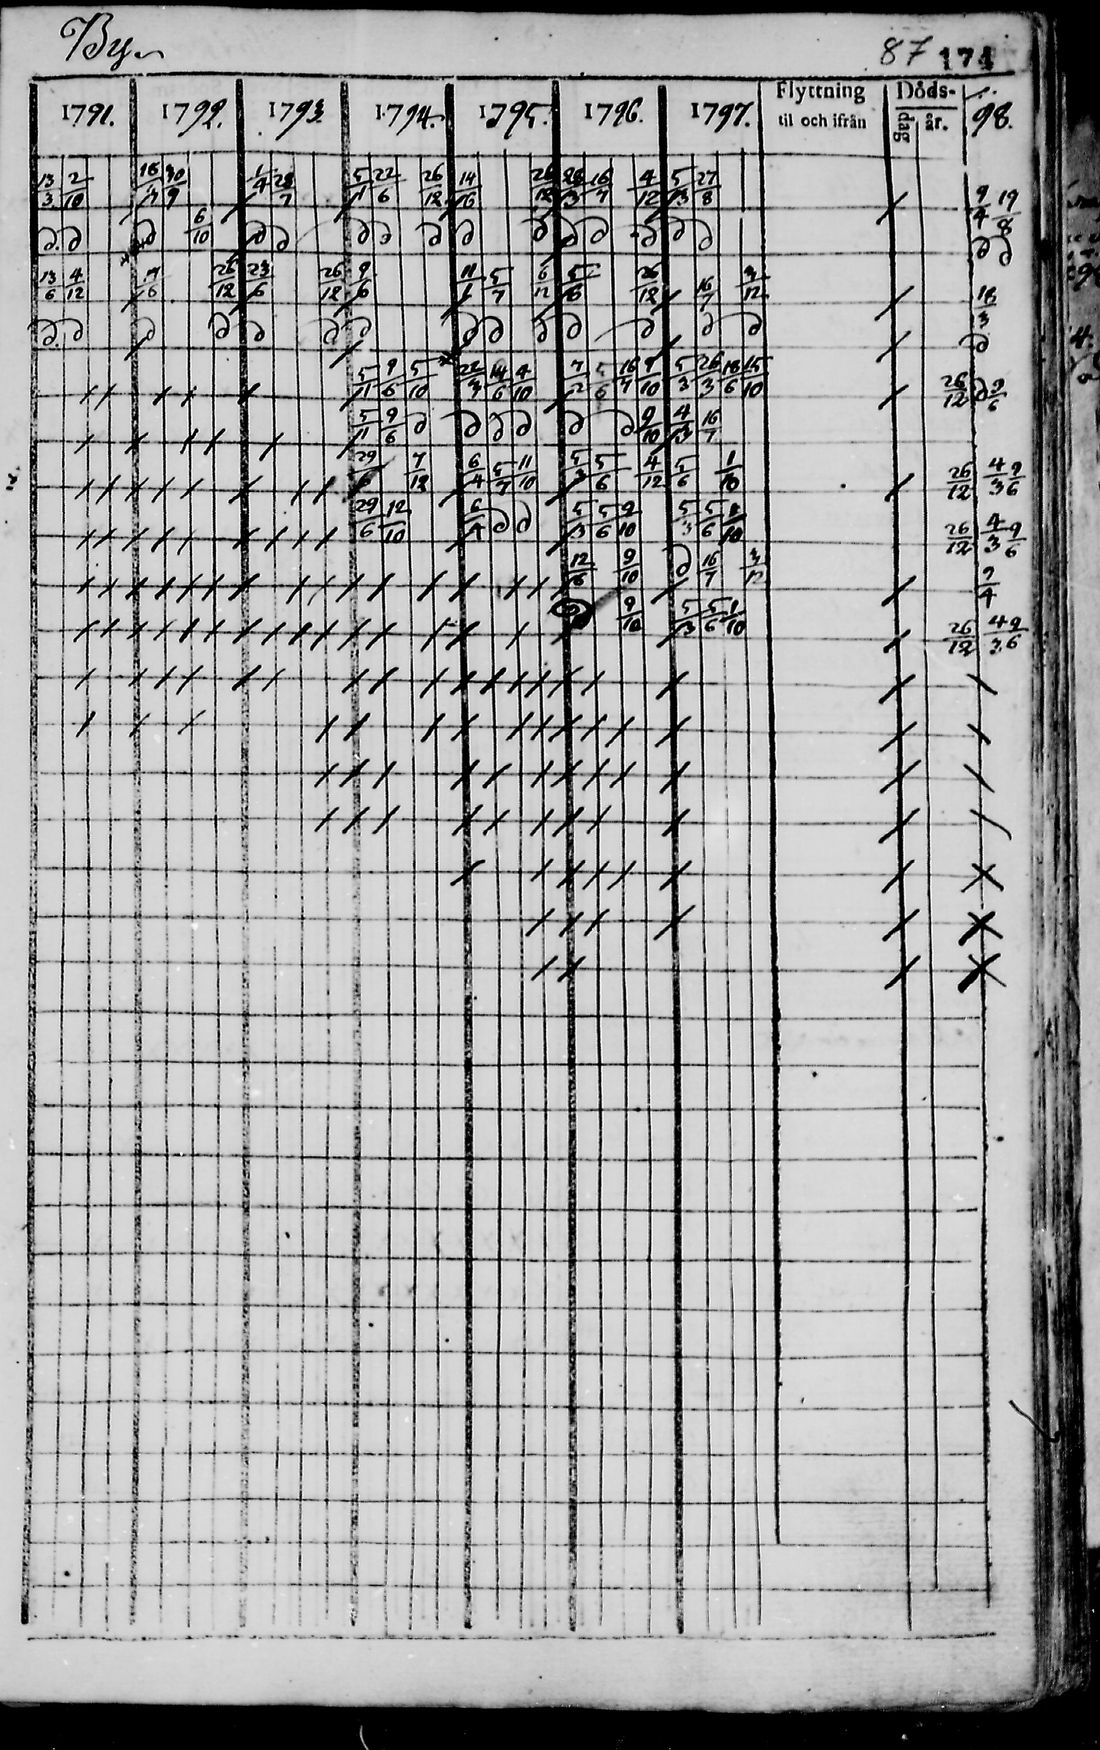 By.
87 174
1791. 1792. 1793 1794. 1795. 1796. 1797. Flyttning til och ifrån Döds- dag år. 98.
13/3 2/10 30/9 1/4 28/7 5/1 22/6 26/12 14/6 26/12 28/3 16/7 4/12 5/3 27/8 9/4 19/8
6/10
13/6 4/12 26/12 23/6 26/12 9/6 11/1 5/7 6/12 5/6 26/12 16/7 3/12 18/3
5/11 9/6 5/10 22/3 14/6 4/10 7/2 5/6 16/7 9/10 5/3 26/3 18/6 15/10 26/12 9/6
5/11 9/6 9/10 4/3 16/7
29/6 7/12 6/4 5/7 11/10 5/3 5/6 4/12 5/6 1/10 26/12 4/3 9/6
29/6 12/10 6/4 5/3 5/6 9/10 5/3 5/6 1/10 26/12 4/3 9/6
12/6 9/10 16/7 3/12 9/4
9/10 5/3 5/6 1/10 26/12 4/3 9/6